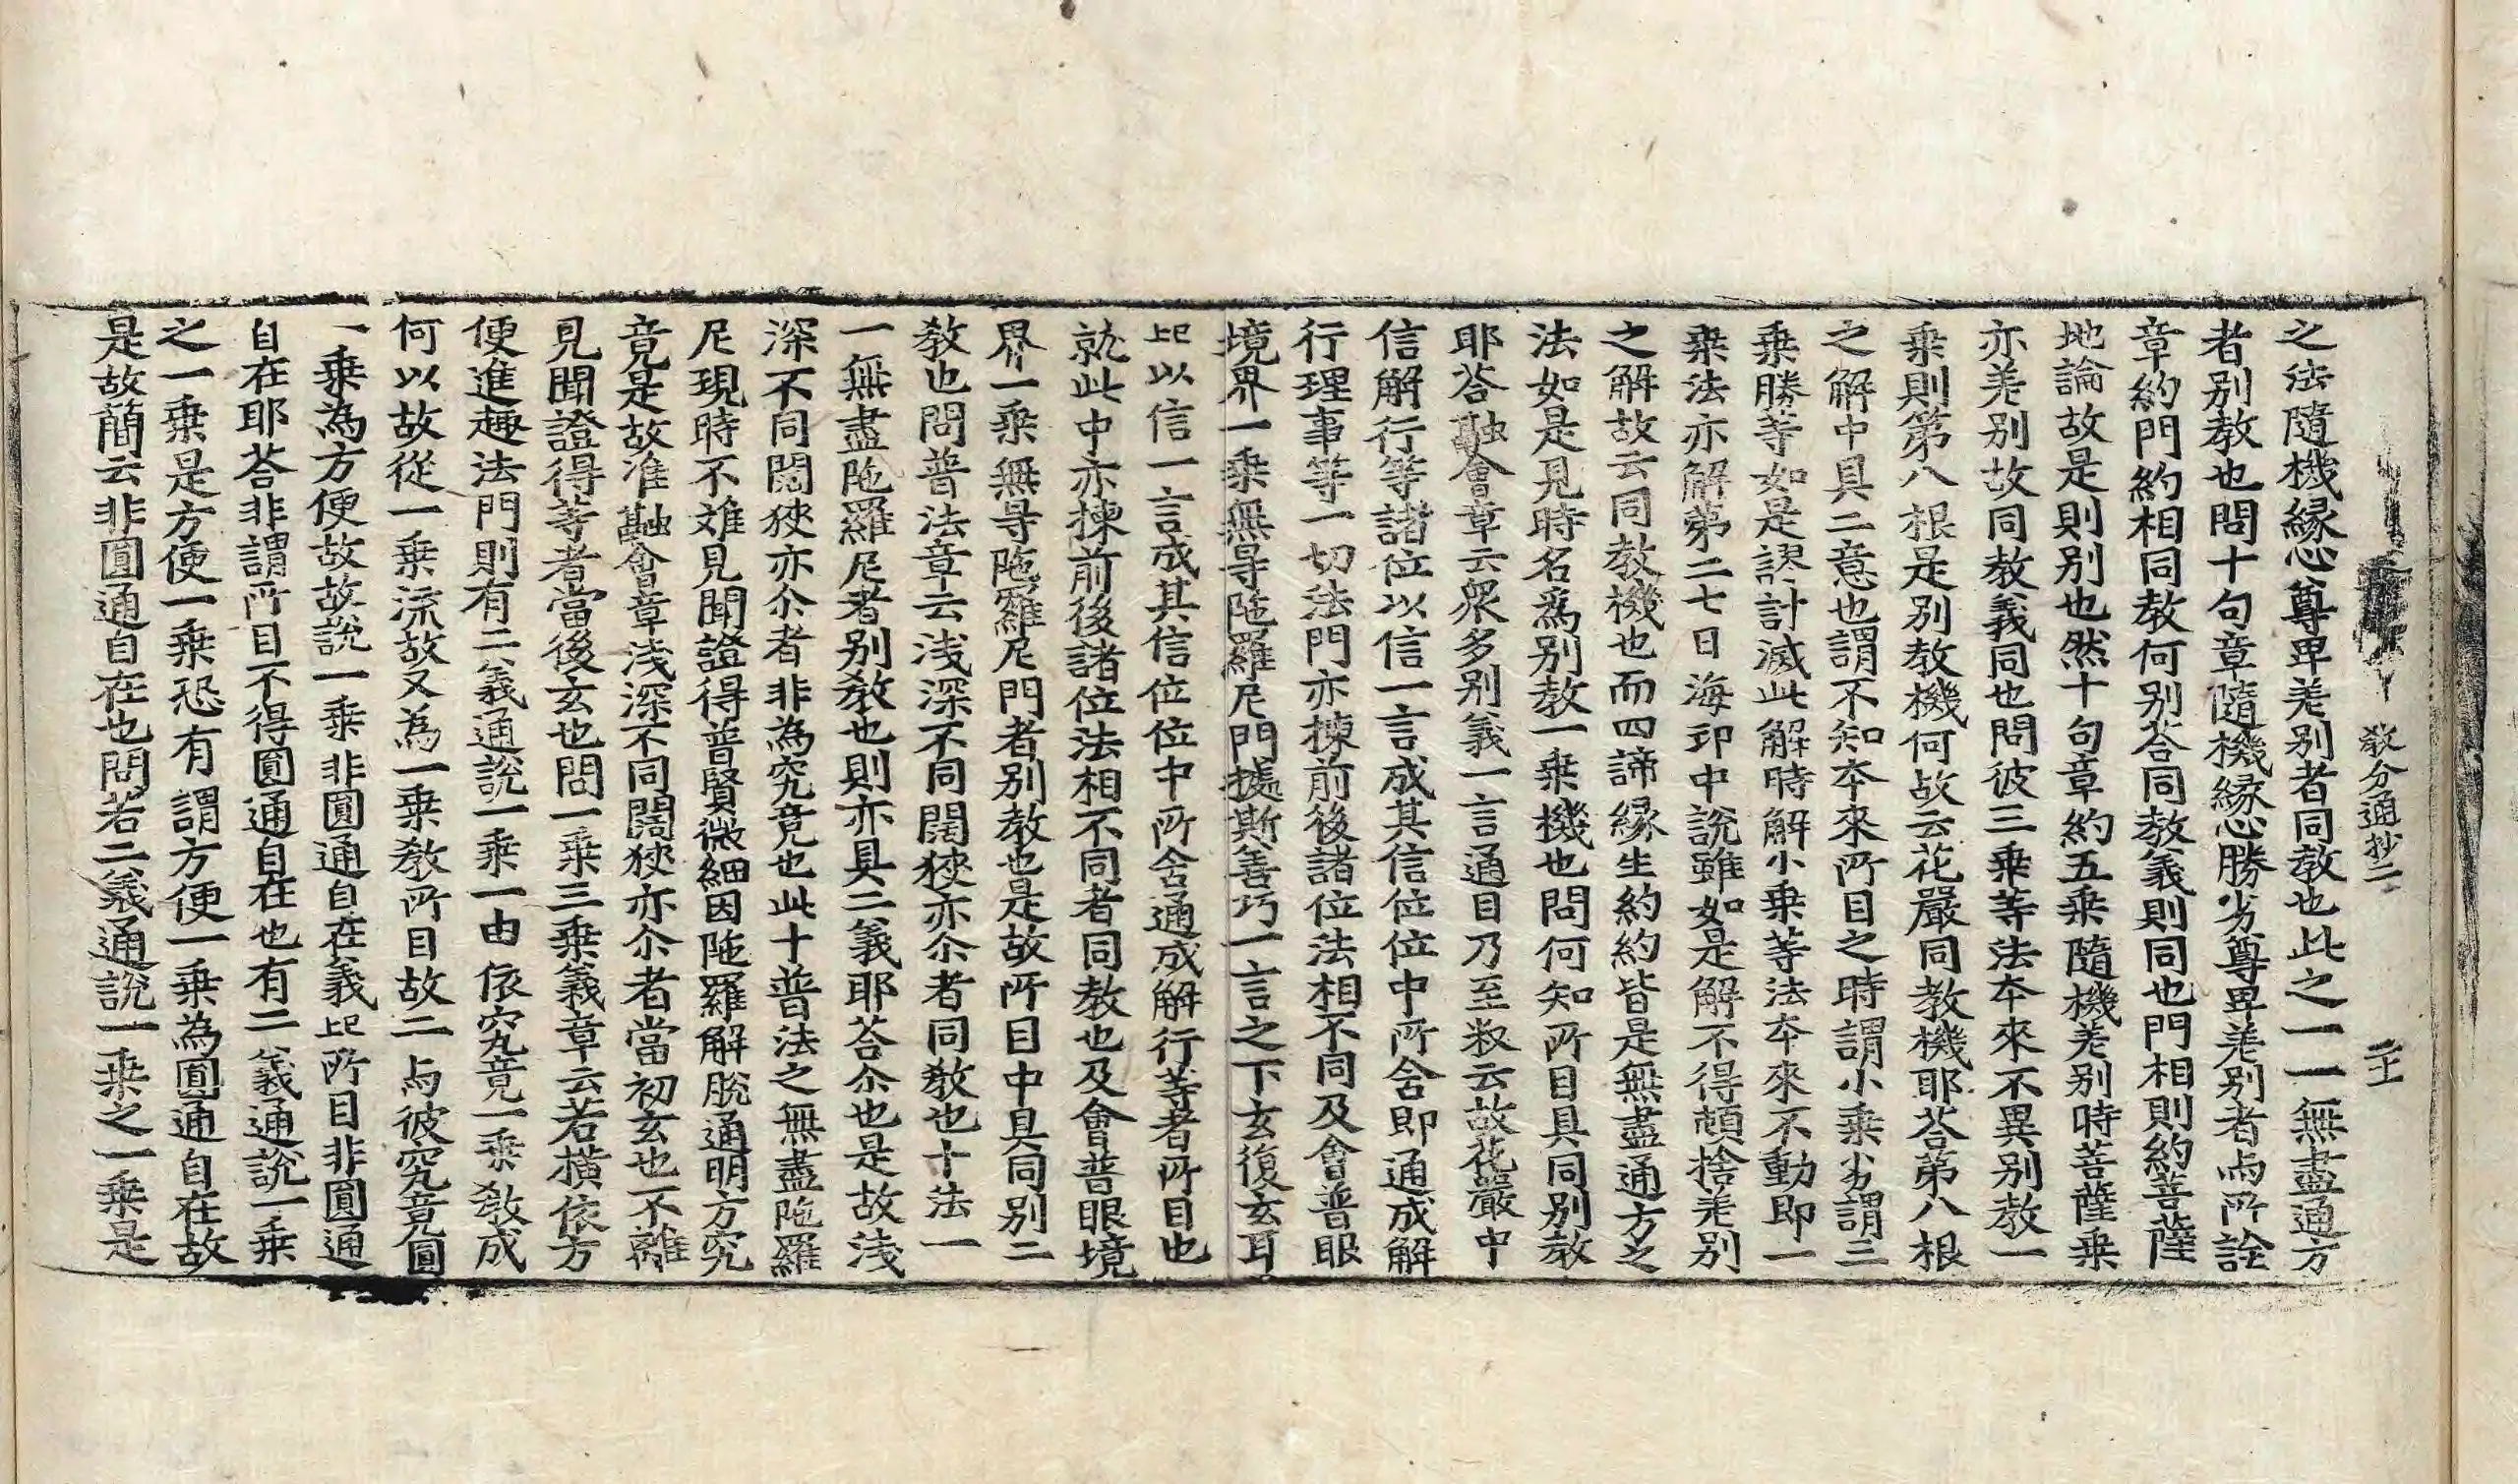 教分通抄二 二十一
之法隨機緣心尊卑差別者同教也此之一一無盡通方
者別教也問十句章隨機緣心勝劣尊卑差別者与所詮
章約門約相同教何別荅同教義則同也門相則約菩薩
地論故是則別也然十句章約五乗隨機差別時菩薩乗
亦差別故同教義同也問彼三乗等法夲來不異別教一
乗則第八根是別教機何故云花嚴同教機耶荅第八根
之解中具二意也謂不知夲來所目之時謂小乗劣謂三
乗勝等如是謬計滅此解時解小乗等法夲來不動即一
乗法亦解第二七日海印中說雖如是解不得頓捨差別
之解故云同教機也而四諦緣生約約皆是無盡通方之
法如是見時名爲別教一乗機也問何知所目具同別教
耶荅融會章云衆多別義一言通目乃至敎云故花嚴中
信解行等諸位以信一言成其信位位中所舍即通成解
行理事等一切法門亦揀前後諸位法相不同及會普眼
境界一乗無㝵陁羅尼門據斯善巧一言之下玄復玄耳
此以信一言成其信位位中所舍通成解行等者所目也
就此中亦揀前後諸位法相不同者同教也及會普眼境
界一乗無㝵陁羅尼門者別教也是故所目中具同別二
教也問普法章云浅深不同闊狹亦尒者同教也十法一
一無盡陁羅尼者別教也則亦具二義耶荅尒也是故浅
深不同闊狹亦尒者非為究竟也此十普法之無盡陁羅
尼現時不難見聞證得普賢微細因陁羅解脫通明方究
竟是故准融會章浅深不同闊狹亦尒者當初玄也不離
見聞證得等者當後玄也問一乗三乗義章云若横依方
便進趣法門則有二義通說一乗一由依究竟一乗教成
何以故從一乗流故又為一乗教所目故二与彼究竟圓
一乗為方便故故說一乗非圓通自在義此所目非圓通
自在耶荅非謂所目不得圓通自在也有二義通說一乗
之一乗是方便一乗恐有謂方便一乗為圓通自在故
是故簡云非圓通自在也問若二義通說一乗之一乗是